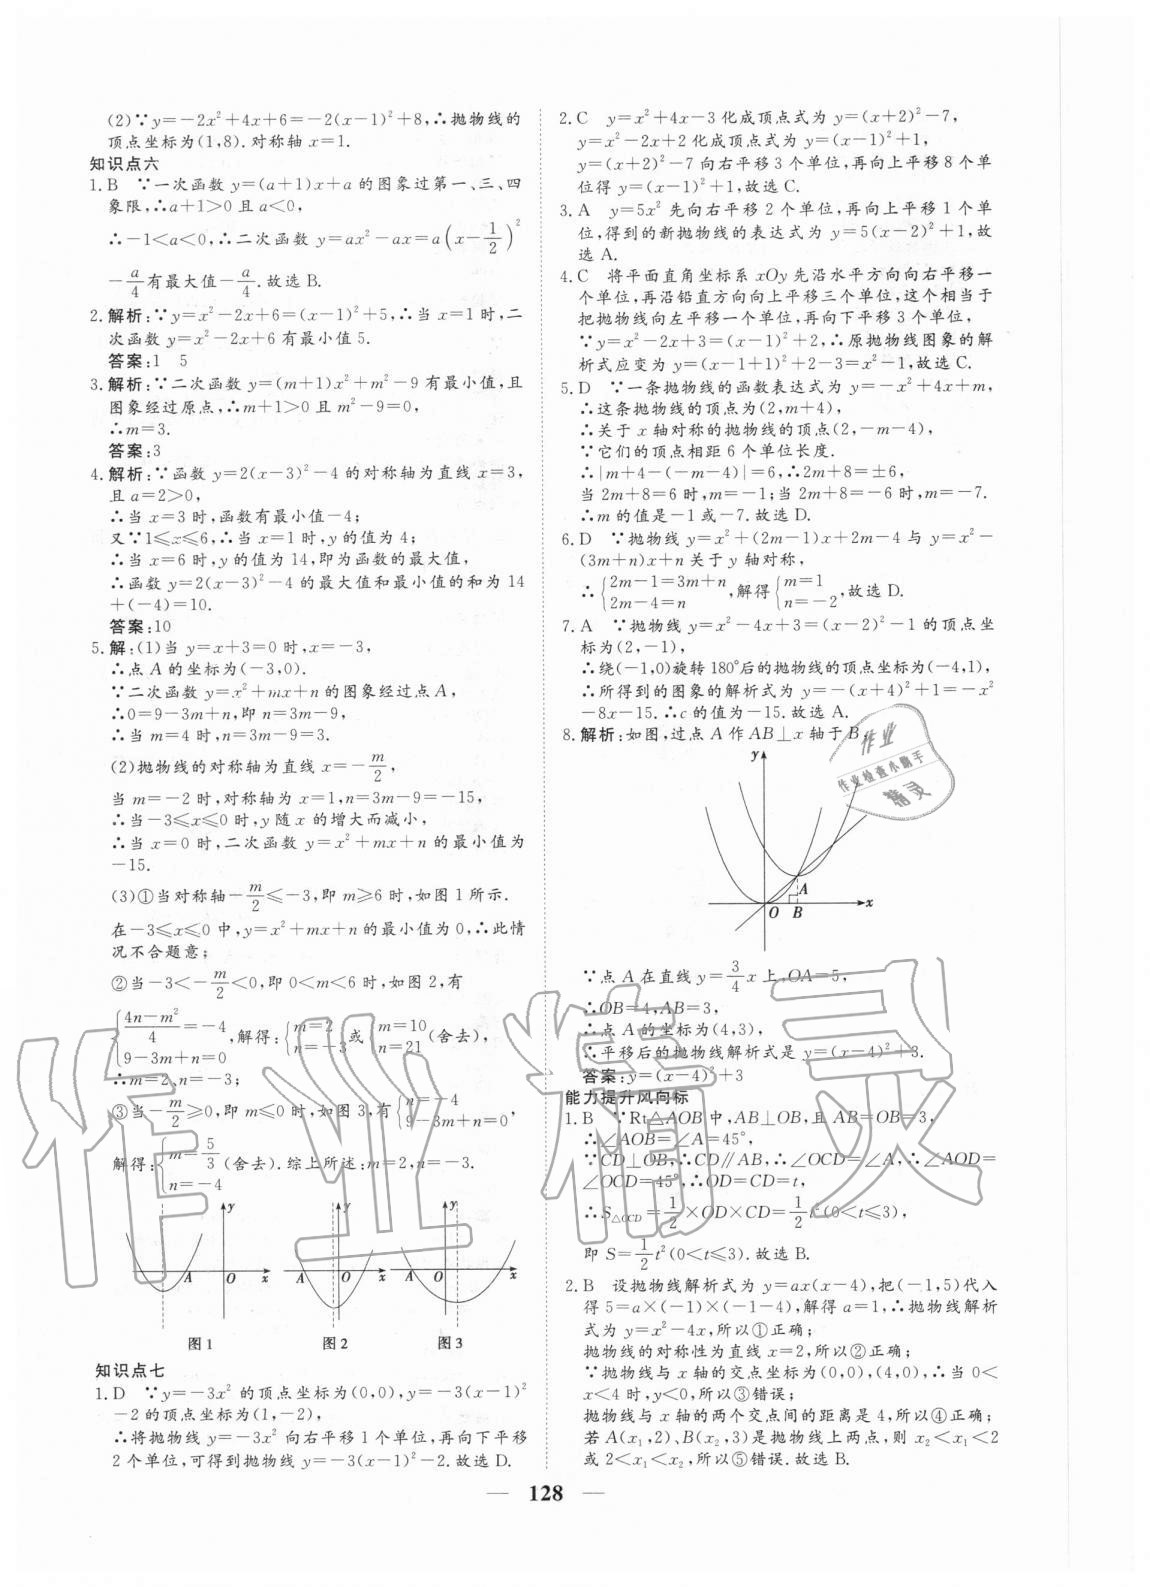 (2)∵y=−2x²+4x+6=−2(x−1)²+8,∴抛物线的
顶点坐标为(1,8).对称轴 x=1.
知识点六
1.B ∵一次函数 y=(a+1)x+a 的图象过第一、三、四
象限,∴a+1>0 且 a<0,
∴−1<a<0,∴二次函数 y=ax²−ax=a(x−1/2)²
−a/4有最大值−a/4.故选 B.
2.解析:∵y=x²−2x+6=(x−1)²+5,∴当 x=1 时,二
次函数 y=x²−2x+6 有最小值 5.
答案:1 5
3.解析:∵二次函数 y=(m+1)x²+m²−9 有最小值,且
图象经过原点,∴m+1>0 且 m²−9=0,
∴m=3.
答案:3
4.解析:∵函数 y=2(x−3)²−4 的对称轴为直线 x=3,
且 a=2>0,
∴当 x=3 时,函数有最小值−4;
又∵1⩽x⩽6,∴当 x=1 时,y 的值为 4;
∴当 x=6 时,y 的值为 14,即为函数的最大值,
∴函数 y=2(x−3)²−4 的最大值和最小值的和为 14
+(−4)=10.
答案:10
5.解:(1)当 y=x+3=0 时,x=−3,
∴点 A 的坐标为(−3,0).
∵二次函数 y=x²+mx+n 的图象经过点 A,
∴0=9−3m+n,即 n=3m−9,
∴当 m=4 时,n=3m−9=3.
(2)抛物线的对称轴为直线 x=−m/2,
当 m=−2 时,对称轴为 x=1,n=3m−9=−15,
∴当−3⩽x⩽0 时,y 随 x 的增大而减小,
∴当 x=0 时,二次函数 y=x²+mx+n 的最小值为
−15.
(3)①当对称轴−m/2⩽−3,即 m⩾6 时,如图 1 所示.
在−3⩽x⩽0 中,y=x²+mx+n 的最小值为 0,∴此情
况不合题意;
②当−3<−m/2<0,即 0<m<6 时,如图 2,有
{(4n−m²)/4=−4
9−3m+n=0 ,解得:{m=2 n=−3 或{m=10 n=21(舍去),
∴m=2、n=−3;
③当−m/2⩾0,即 m⩽0 时,如图 3,有{n=−4 9−3m+n=0,
解得:{m=5/3 n=−4 (舍去).综上所述:m=2,n=−3.
y A O x
y A O x
y A O x
图 1 图 2 图 3
知识点七
1.D ∵y=−3x² 的顶点坐标为(0,0),y=−3(x−1)²
−2 的顶点坐标为(1,−2),
∴将抛物线 y=−3x² 向右平移 1 个单位,再向下平移
2 个单位,可得到抛物线 y=−3(x−1)²−2.故选 D.
2.C y=x²+4x−3 化成顶点式为 y=(x+2)²−7,
y=x²−2x+2 化成顶点式为 y=(x−1)²+1,
y=(x+2)²−7 向右平移 3 个单位,再向上平移 8 个单
位得 y=(x−1)²+1,故选 C.
3.A y=5x² 先向右平移 2 个单位,再向上平移 1 个单
位,得到的新抛物线的表达式为 y=5(x−2)²+1,故
选 A.
4.C 将平面直角坐标系 xOy 先沿水平方向向右平移一
个单位,再沿铅直方向向上平移三个单位,这个相当于
把抛物线向左平移一个单位,再向下平移 3 个单位,
∵y=x²−2x+3=(x−1)²+2,∴原抛物线图象的解
析式应变为 y=(x−1+1)²+2−3=x²−1,故选 C.
5.D ∵一条抛物线的函数表达式为 y=−x²+4x+m,
∴这条抛物线的顶点为(2,m+4),
∴关于 x 轴对称的抛物线的顶点(2,−m−4),
∵它们的顶点相距 6 个单位长度.
∴|m+4−(−m−4)|=6,∴2m+8=±6,
当 2m+8=6 时,m=−1;当 2m+8=−6 时,m=−7.
∴m 的值是−1 或−7.故选 D.
6.D ∵抛物线 y=x²+(2m−1)x+2m−4 与 y=x²−
(3m+n)x+n 关于 y 轴对称,
∴{2m−1=3m+n 2m−4=n ,解得{m=1 n=−2,故选 D.
7.A ∵抛物线 y=x²−4x+3=(x−2)²−1 的顶点坐
标为(2,−1),
∴绕(−1,0)旋转 180°后的抛物线的顶点坐标为(−4,1),
∴所得到的图象的解析式为 y=−(x+4)²+1=−x²
−8x−15.∴c 的值为−15.故选 A.
8.解析:如图,过点 A 作 AB⊥x 轴于 B,
y A O B x
∵点 A 在直线 y=3/4x 上,OA=5,
∴OB=4,AB=3,
∴点 A 的坐标为(4,3),
∴平移后的抛物线解析式是 y=(x−4)²+3.
答案:y=(x−4)²+3
能力提升风向标
1.B ∵Rt△AOB 中,AB⊥OB,且 AB=OB=3,
∴∠AOB=∠A=45°,
∵CD⊥OB,∴CD∥AB,∴∠OCD=∠A,∴∠AOD=
∠OCD=45°,∴OD=CD=t,
∴S△OCD=1/2×OD×CD=1/2t²(0<t⩽3),
即 S=1/2t²(0<t⩽3).故选 B.
2.B 设抛物线解析式为 y=ax(x−4),把(−1,5)代入
得 5=a×(−1)×(−1−4),解得 a=1,∴抛物线解析
式为 y=x²−4x,所以①正确;
抛物线的对称性为直线 x=2,所以②正确;
∵抛物线与 x 轴的交点坐标为(0,0),(4,0),∴当 0<
x<4 时,y<0,所以③错误;
抛物线与 x 轴的两个交点间的距离是 4,所以④正确;
若 A(x₁,2)、B(x₂,3)是抛物线上两点,则 x₂<x₁<2
或 2<x₁<x₂,所以⑤错误.故选 B.
128
作业
作业检查小帮手
精灵
作业精灵